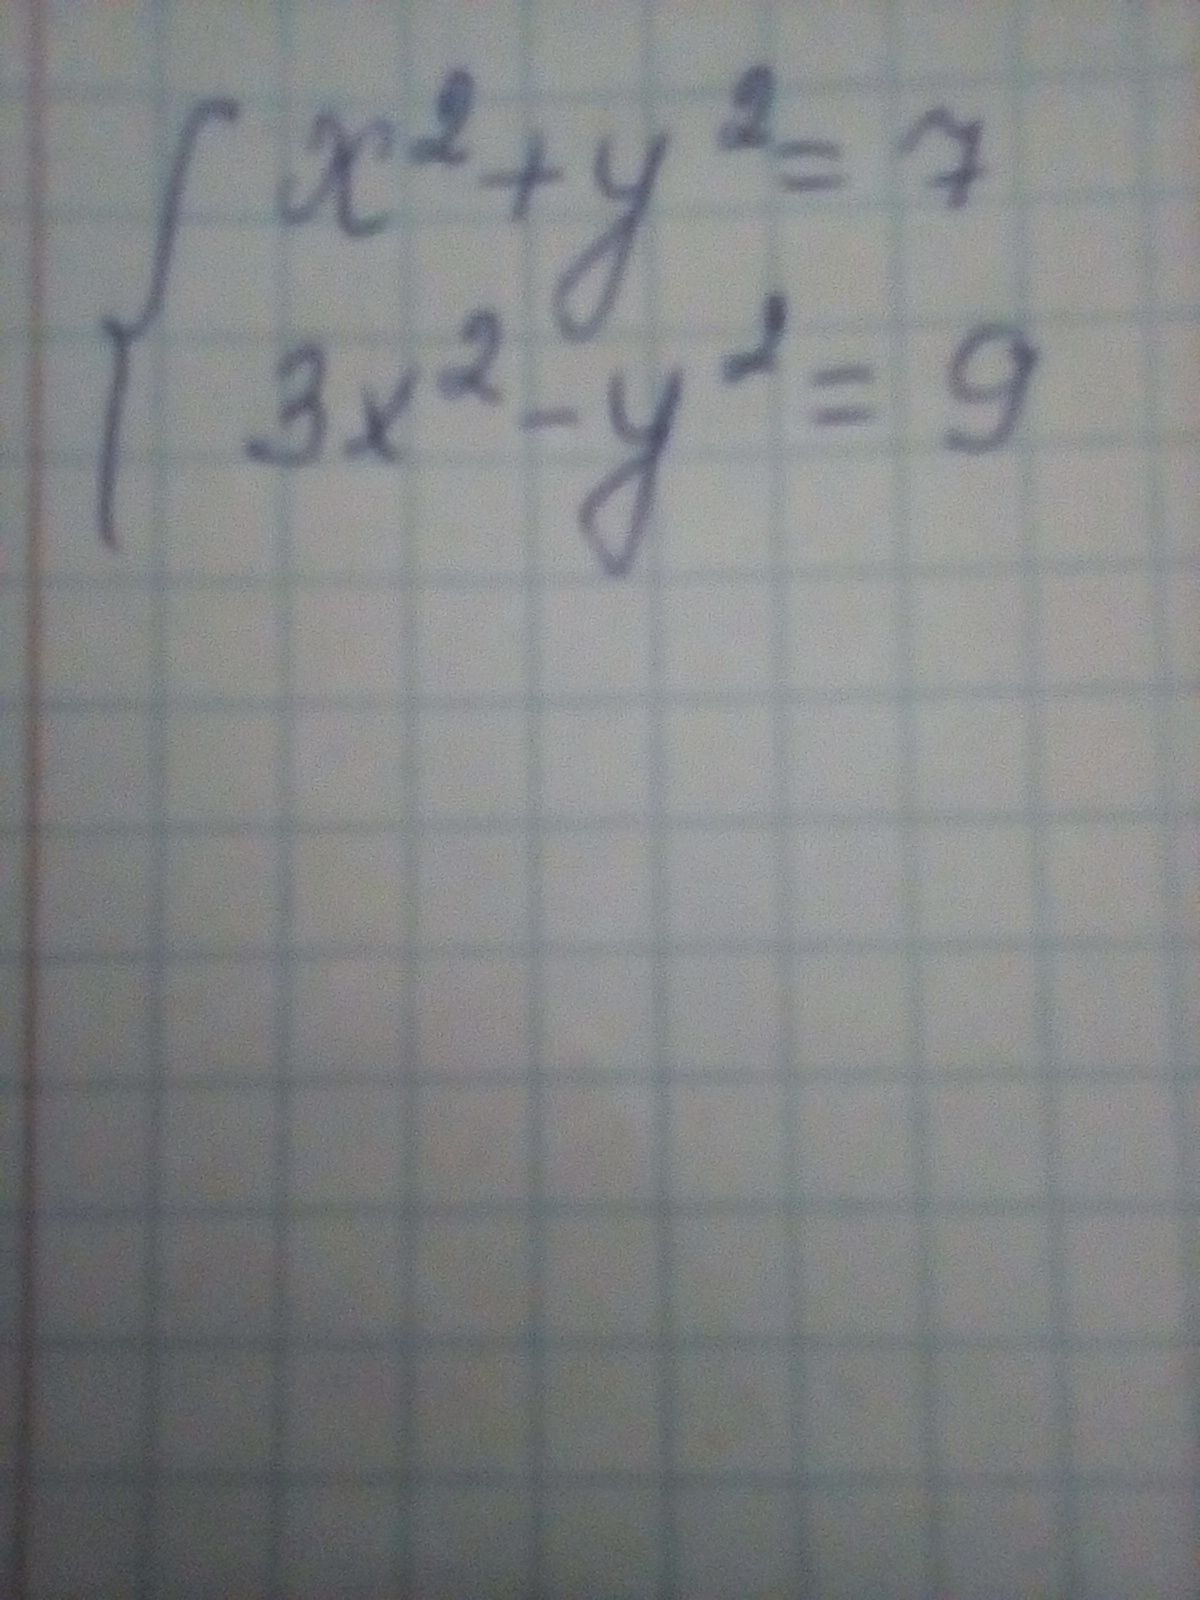 x² + y² = 7
3x² - y² = 9